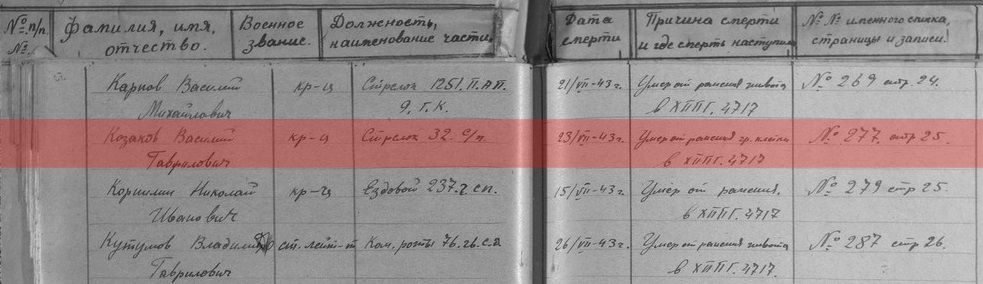 № п/п. Фамилия, имя, Военное Должность, Дата Причина смерти № № именного списка,
№. отчество. звание. наименование части. смерти и где смерть наступила страницы и записи.
Карпов Василий кр-ц Стрелок 1251. П. АП. 21/VII-43 г. Умер от ранения живота № 269 стр 24.
Михайлович 9. Г. К. в ХППГ. 4717
Козаков Василий кр-ц Стрелок 32. с/п. 23/VII-43 г. Умер от ранения гр. клетки № 277. стр 25.
Гаврилович в ХППГ. 4717
Коршилин Николай кр-ц Ездовой 237. г сп. 15/VII-43 г. Умер от ранения. № 279 стр 25.
Иванович в ХППГ. 4717
Кутумов Владимир ст. лейт-т Ком. роты 76. гв. с.д. 26/VII-43 г. Умер от ранения живота № 287 стр 26.
Гаврилович в ХППГ. 4717.